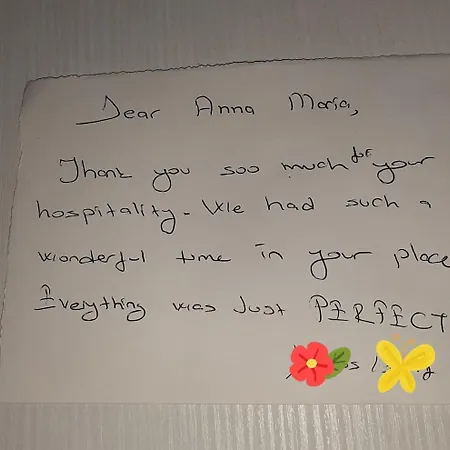 Dear Anna Maria,
Thank you soo much for your
hospitality. We had such a
wonderful time in your place
Everything was Just PERFECT